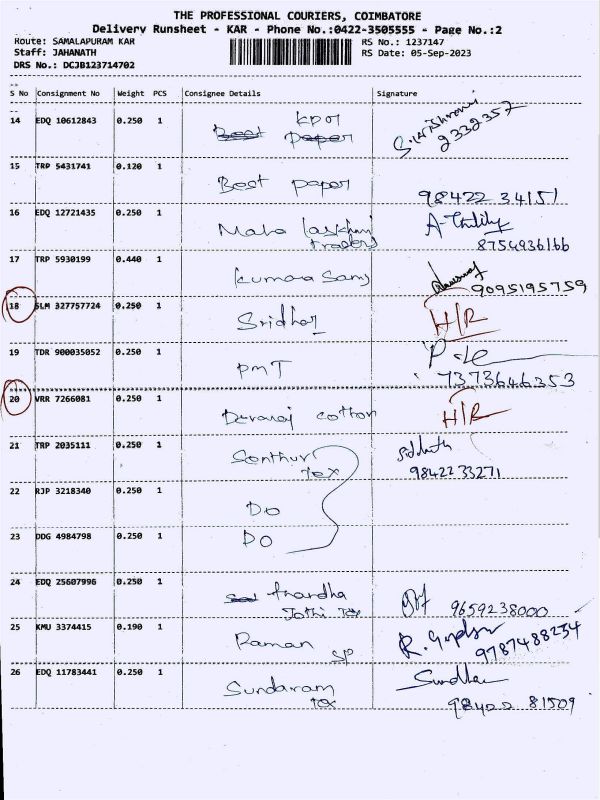 THE PROFESSIONAL COURIERS, COIMBATORE
Delivery Runsheet - KAR - Phone No.:0422-3505555 - Page No.:2
Route: SAMALAPURAM KAR RS No.: 1237147
Staff: JAHANATH RS Date: 05-Sep-2023
DRS No.: DCJB123714702
S No Consignment No Weight PCS Consignee Details Signature
14 EDQ 10612843 0.250 1 KPR
2332357
15 TRP 5431741 0.120 1 Best paper
98422 34151
16 EDQ 12721435 0.250 1 Maha
traders
8754936166
17 TRP 5930199 0.440 1 Kumara Samy
9095195759
18 SLM 327757724 0.250 1 Sridhar H/R
19 TDR 900035052 0.250 1 PMT
7373646353
20 VRR 7266081 0.250 1 Devaraj cotton H/R
21 TRP 2035111 0.250 1 Senthur
Tex
9842233271
22 RJP 3218340 0.250 1 DO
23 DDG 4984798 0.250 1 DO
24 EDQ 25607996 0.250 1
Jothi Tex 9659238000
25 KMU 3374415 0.190 1 Raman
SP 9787488234
26 EDQ 11783441 0.250 1 Sundaram
Tex
98422 81509